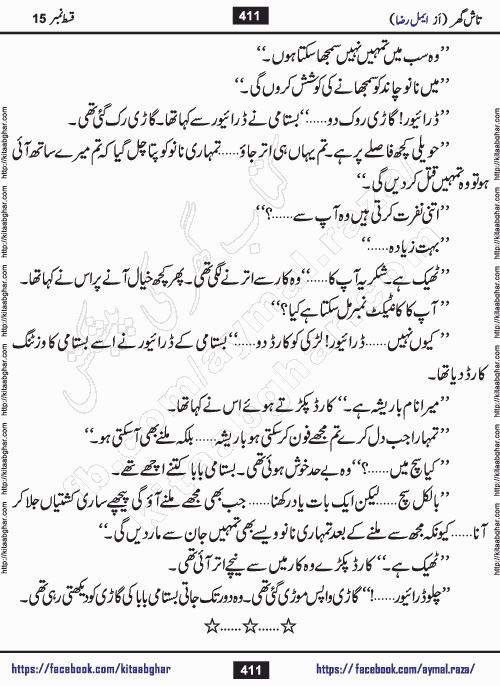 قسط نمبر 15
411
تاش گھر (از ایمل رضا)
’’وہ سب میں تمہیں نہیں سمجھا سکتا ہوں۔‘‘
’’میں نانو چاند کو سمجھانے کی کوشش کروں گی۔‘‘
’’ڈرائیور! گاڑی روک دو......‘‘ بستامی نے ڈرائیور سے کہا تھا۔ گاڑی رک گئی تھی۔
’’حویلی کچھ فاصلے پر ہے۔ تم یہاں ہی اتر جاؤ.....تمہاری نانو کو پتا چل گیا کہ تم میرے ساتھ آئی
ہو تو وہ تمہیں قتل کر دیں گی۔‘‘
’’اتنی نفرت کرتی ہیں وہ آپ سے......؟‘‘
’’بہت زیادہ......‘‘
’’ٹھیک ہے۔ شکریہ آپ کا......‘‘ وہ کار سے اترنے لگی تھی۔ پھر کچھ خیال آنے پر اس نے کہا تھا۔
’’آپ کا کانٹیکٹ نمبر مل سکتا ہے کیا؟‘‘
’’کیوں نہیں......ڈرائیور! لڑکی کو کارڈ دو......‘‘ بستامی کے ڈرائیور نے اسے بستامی کا وزٹنگ
کارڈ دیا تھا۔
’’میرا نام باریشہ ہے۔‘‘ کارڈ پکڑتے ہوئے اس نے کہا تھا۔
’’تمہارا جب دل کرے تم مجھے فون کر سکتی ہو باریشہ......بلکہ ملنے بھی آ سکتی ہو۔‘‘
’’کیا سچ میں......؟‘‘ وہ بے حد خوش ہوئی تھی۔ بستامی بابا کتنے اچھے تھے۔
’’بالکل سچ......لیکن ایک بات یاد رکھنا......جب بھی مجھے ملنے آؤ گی پیچھے ساری کشتیاں جلا کر
آنا......کیونکہ مجھ سے ملنے کے بعد تمہاری نانو ویسے بھی تمہیں جان سے مار دیں گی۔‘‘
’’ٹھیک ہے۔‘‘ کارڈ پکڑے وہ کار میں سے نیچے اتر آئی تھی۔
’’چلو ڈرائیور......!‘‘ گاڑی واپس موڑی گئی تھی۔ وہ دور تک جاتی بستامی بابا کی گاڑی کو دیکھتی رہی تھی۔
☆......☆......☆
https://facebook.com/kitaabghar
411
https://facebook.com/aymal.raza/
http://kitaabghar.com http://kitaabghar.com http://kitaabghar.com http://kitaabghar.com http://kitaabghar.com http://kitaabghar.com
http://kitaabghar.com http://kitaabghar.com http://kitaabghar.com http://kitaabghar.com http://kitaabghar.com http://kitaabghar.com
کتاب گھر کی پیشکش
fb.com/aymal.raza
kitaabghar.com